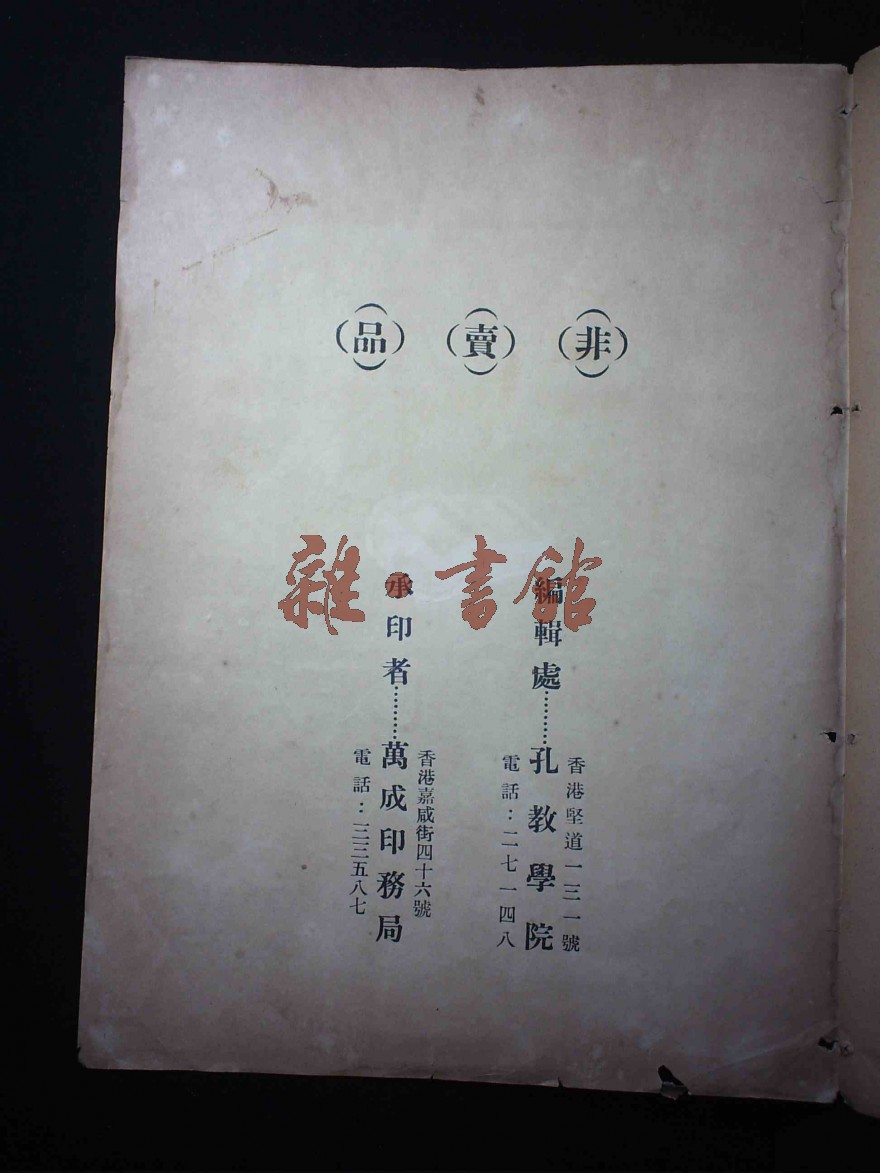 （非）（賣）（品）
編輯處………孔教學院
香港堅道一三一號
電話：二七一四八
承印者………萬成印務局
香港嘉咸街四十六號
電話：三三五八七
雜書館